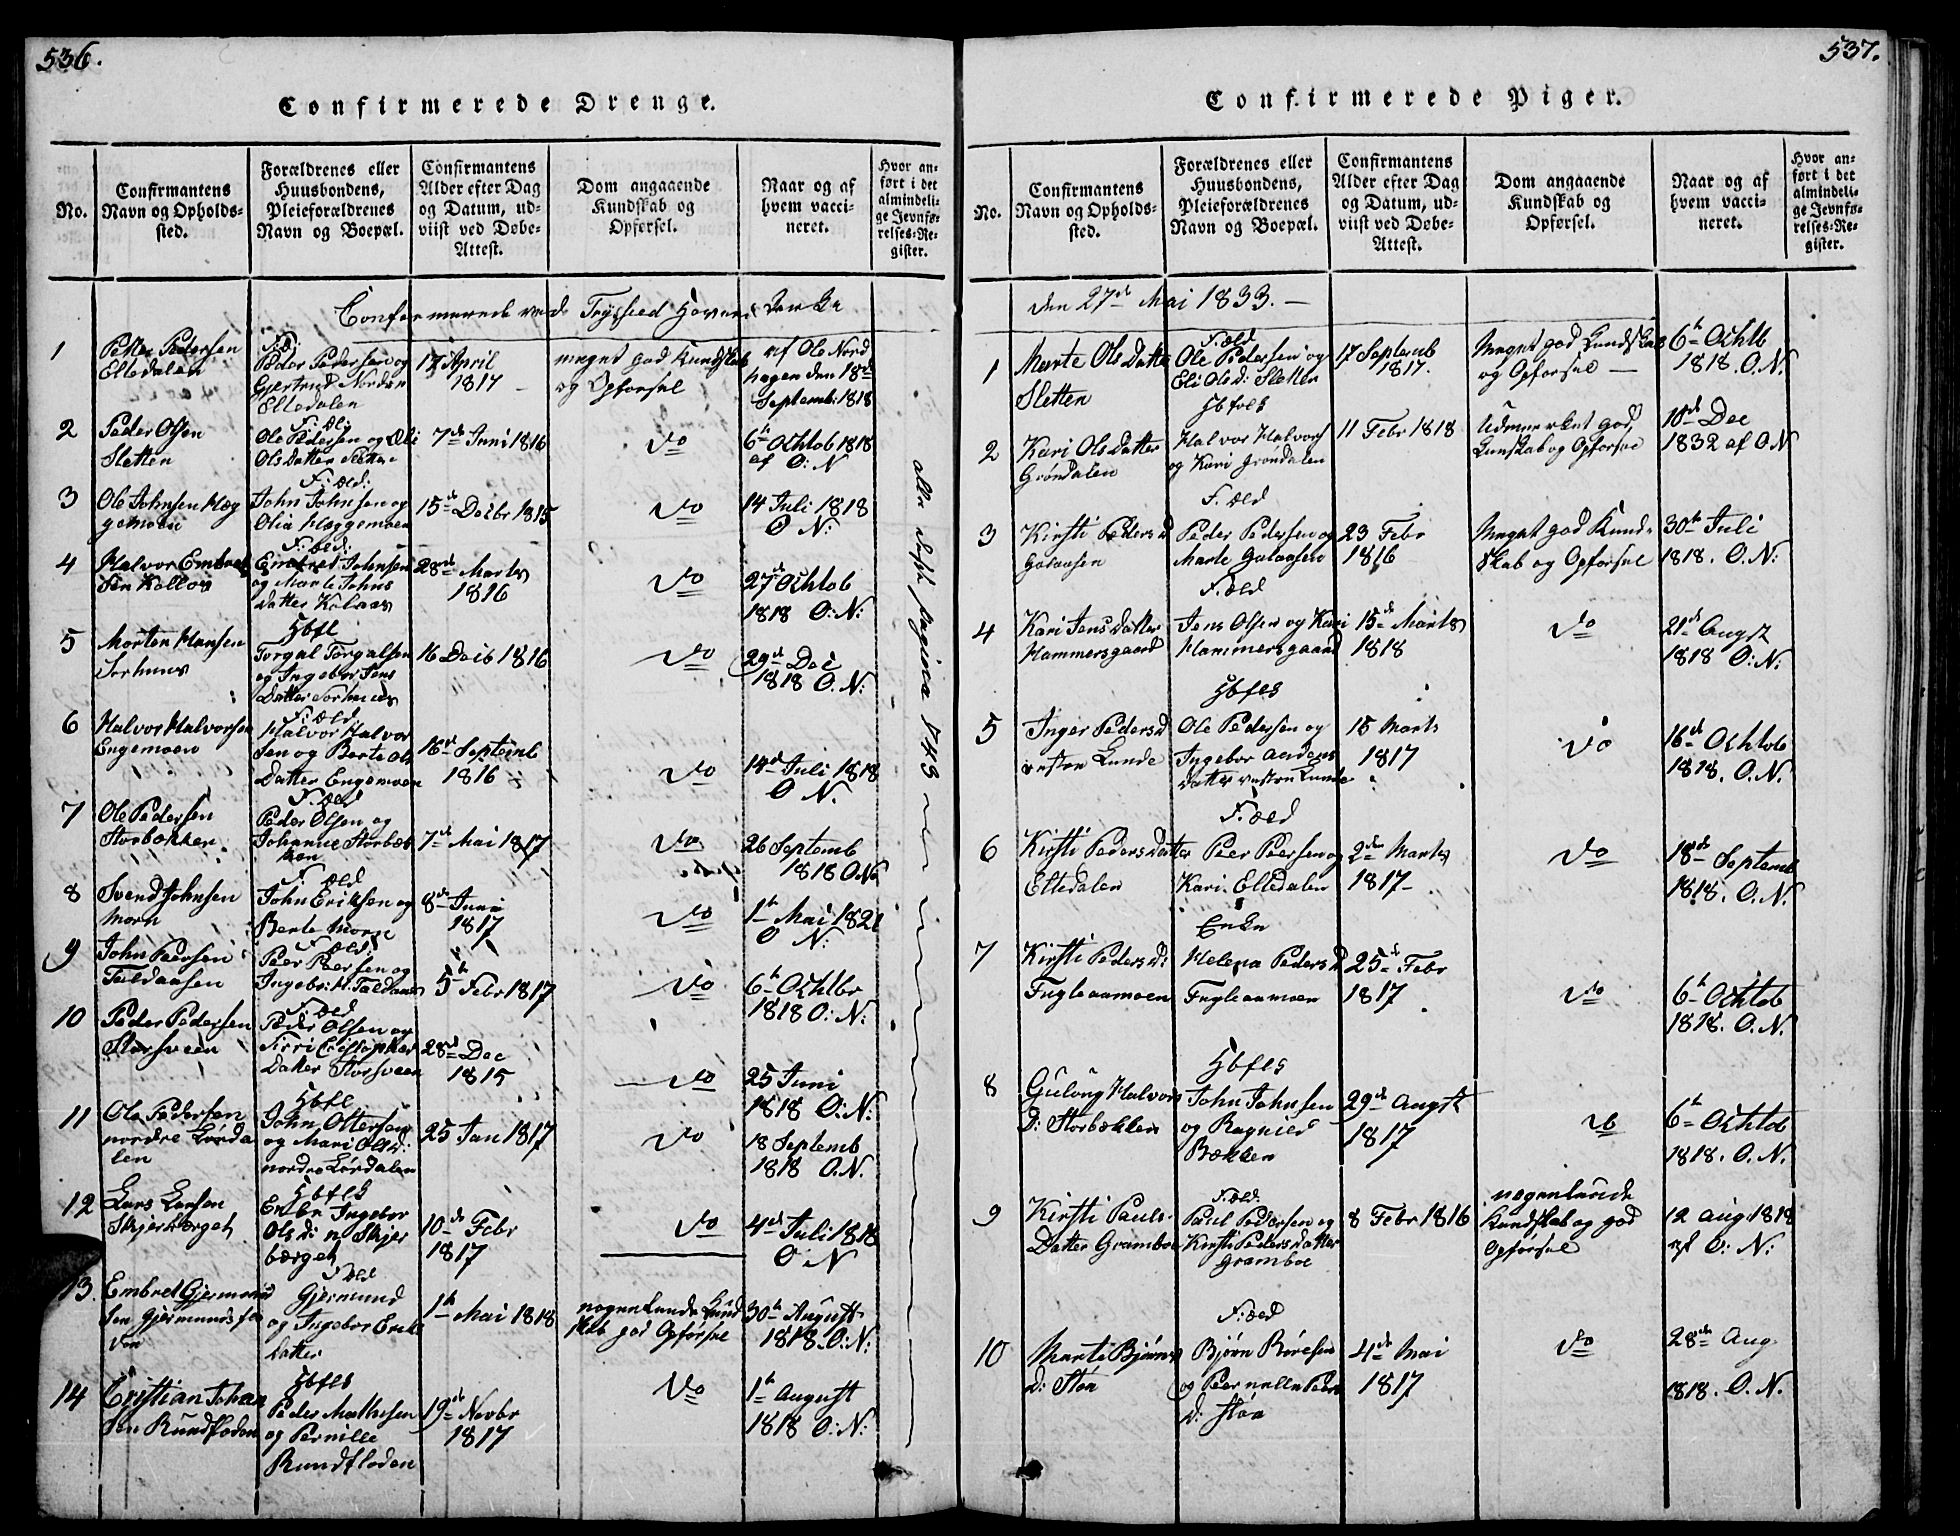 536.
Confirmerede Drenge.
No.
Confirmantens
Navn og Opholds-
sted.
Forældrenes eller
Huusbondens,
Pleieforældrenes
Navn og Boepæl.
Confirmantens
Alder efter Dag
og Datum, ud-
viist ved Døbe-
Attest.
Dom angaaende
Kundskab og
Opførsel.
Naar og af
hvem vacci-
neret.
Hvor an-
ført i det
almindeli-
ge Jevnfø-
relses-Re-
gister.
1
Peder Pedersen
Elledalen
Peder Pedersen og
Gjertrud Norden
Elledalen
17 April
1817
meget god Kundskab
og Opførsel
af Ole Nord
hagen den 18de
Septemb: 1818
2
Peder Olsen
Sletten
F: æld:
Ole Pedersen og Eli
Olsdatter Sletten
7de Juni 1816
Do
6te Ochtob 1818
af O: N
3
Ole Johnsen Hæg
gemoen
F: æld:
John Johnsen og
Olia Hæggemoen
15de Decbr 1815
Do
14 Juli 1818
O N:
4
Halvor Embret
sen Kollos
F: æld:
Embret Johnsen
og Marte Johns
datter Kolaas
28de Marts
1816
Do
27de Ochtob
1818 O: N:
5
Morten Hansen
Sorhuus
Hbfl
Torgal Torgalsen
og Ingebor Jens
Datter Sorhuus
16 Decb 1816
Do
29de Dec
1818 O. N:
6
Halvor Halvorsen
Engemoen
F: æld
Halvor Halvor
sen og Berte Ols
Datter Engemoen
16de Septemb
1816
Do
14de Juli 1818
O N.
7
Ole Pedersen
Storbækken
F: æld
Peder Olsen og
Johanne Storbæk
ken
7de Mai 1817
Do
26 Septemb
1818 O N.
8
Svend Johnsen
Morn
F: æld
John Eriksen og
Berte Morn
8de Juni
1817
Do
1te Mai 1821
O N:
9
John Peersen
Teildaasen
F: æld:
Peer Peersen og
5te Febr 1817
Do
6te Ochtbr
1818 O: N:
10
Peder Pedersen
Storsveen
F: æld
Peder Olsen og
Siri Cristopher
Datter Storsveen
28de Dec
1815
Do
25 Juni
1818 O: N:
11
Ole Pedersen
nordre Lørda
len
Hbfl
John Ottersen
og Mari Olsd:
nordre Lørdalen
25 Jan 1817
Do
18 Septemb
1818 O. N.
12
Lars Larsen
Skjerberget
Hbfls
Enke Ingebor
Olsd: n Skjer
berget
10de Febr
1817
Do
4de Juli 1818
O N
13.
Embret Gjermund
sen Gjermundsfo
F: æld
Gjermund
og Ingebor Eriks
datter
1te Mai 1818
nogenlunde Kund
skab god Opførsel
30te August
1818. O: N:
14
Cristian Johan
sen Rundfloden
Hbfls
Peder Mathisen
og Pernille
Rundfloden
19de Novbr
1817
Do
1te August
1818 O: N:
537.
Confirmerede Piger.
No.
Confirmantens
Navn og Opholds-
sted.
Forældrenes eller
Huusbondens,
Pleieforældrenes
Navn og Boepæl.
Confirmantens
Alder efter Dag
og Datum, ud-
viist ved Døbe-
Attest.
Dom angaaende
Kundskab og
Opførsel.
Naar og af
hvem vacci-
neret.
Hvor an-
ført i det
almindeli-
ge Jevnfø-
relses-Re-
gister.
den 27de Mai 1833. —
1
Marte Olsdatter
Sletten
F. æld
Ole Pedersen og
Eli Olsd: Sletten
17 Septemb
1817.
Meget god Kundskab
og Opførsel —
6te Ochtb
1818. O. N.
2
Kari Olsdatter
Grøndalen
Hbfols
Halvor Halvors
og Kari Grøndalen
11 Febr 1818
Udmærket god
Kunskab og Opførsel
10de Dec
1832 af O N
3
Kirsti Pedersd
Galaasen
F. æld
Peder Pedersen og
Marte Galaasen
23 Febr
1816
Meget god Kund-
skab og Opførsel
30te Juli
1818. O. N:
4
Kari Jensdatter
Hammersgaard
F. æld
Jens Olsen og Kari
Hammersgaard
15de Marts
1818
Do
21de Augst
1818 O: N:
5
Inger Pedersd
østre Lunde
Hbfls
Ole Pedersen og
Ingebor Andens
datter østre Lunde
18 Marts
1817
Do
16de Ochtob
1818. O. N.
6
Kirsti Pedersdatter
Elledalen
F. æld
Peer Peersen og
Kari Elledalen
2den Marts
1817
Do
18de Septemb
1818. O. N.
7
Kirsti Pedersd:
Fugleaamoen
Enke
Helena Pedersd
Fugleaamoen
25de Febr
1817
Do
6te Ochtob
1818. O. N.
8
Gulong Halvors
D: Storbækken
Hbfls
John Johnsen
og Ragnild
Bækken
29de Augst
1817
Do
6te Ochtob
1818. O. N.
9
Kirsti Pauls-
Datter Gramboe
F: æld:
Paul Pedersen og
Kirsti Pedersdatter
Gramboe
8 Febr 1816
nogenlunde
Kundskab og god
Opførsel
12 Aug 1818
af O: N:
10
Marte Bjørns
D: Støa
F: æld
Bjørn Børesen
og Peernelle Peers
D: Støa
4de Mai
1817
Do
28de Aug
1818. O. N.